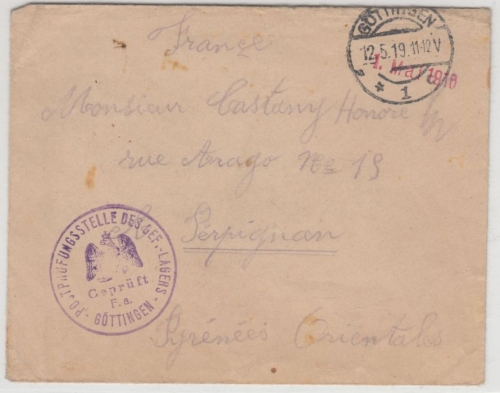 France
GÖTTINGEN
12.5.19.11-12V
* 1
1. Mai 1918
Monsieur Castany Honoré
rue Arago No 15
Perpignan
Pyrénées Orientales
POSTPRÜFUNGSSTELLE DES GEF.-LAGERS
Geprüft
F.a.
- GÖTTINGEN -